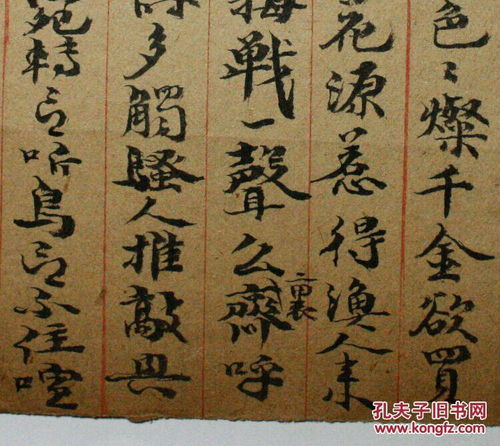 色〻燦千金欲買
花源惹得漁人来
戦一聲么齊呼
多觸騷人推敲興
轉听鳥不住喧
孔夫子旧书网
www.kongfz.com